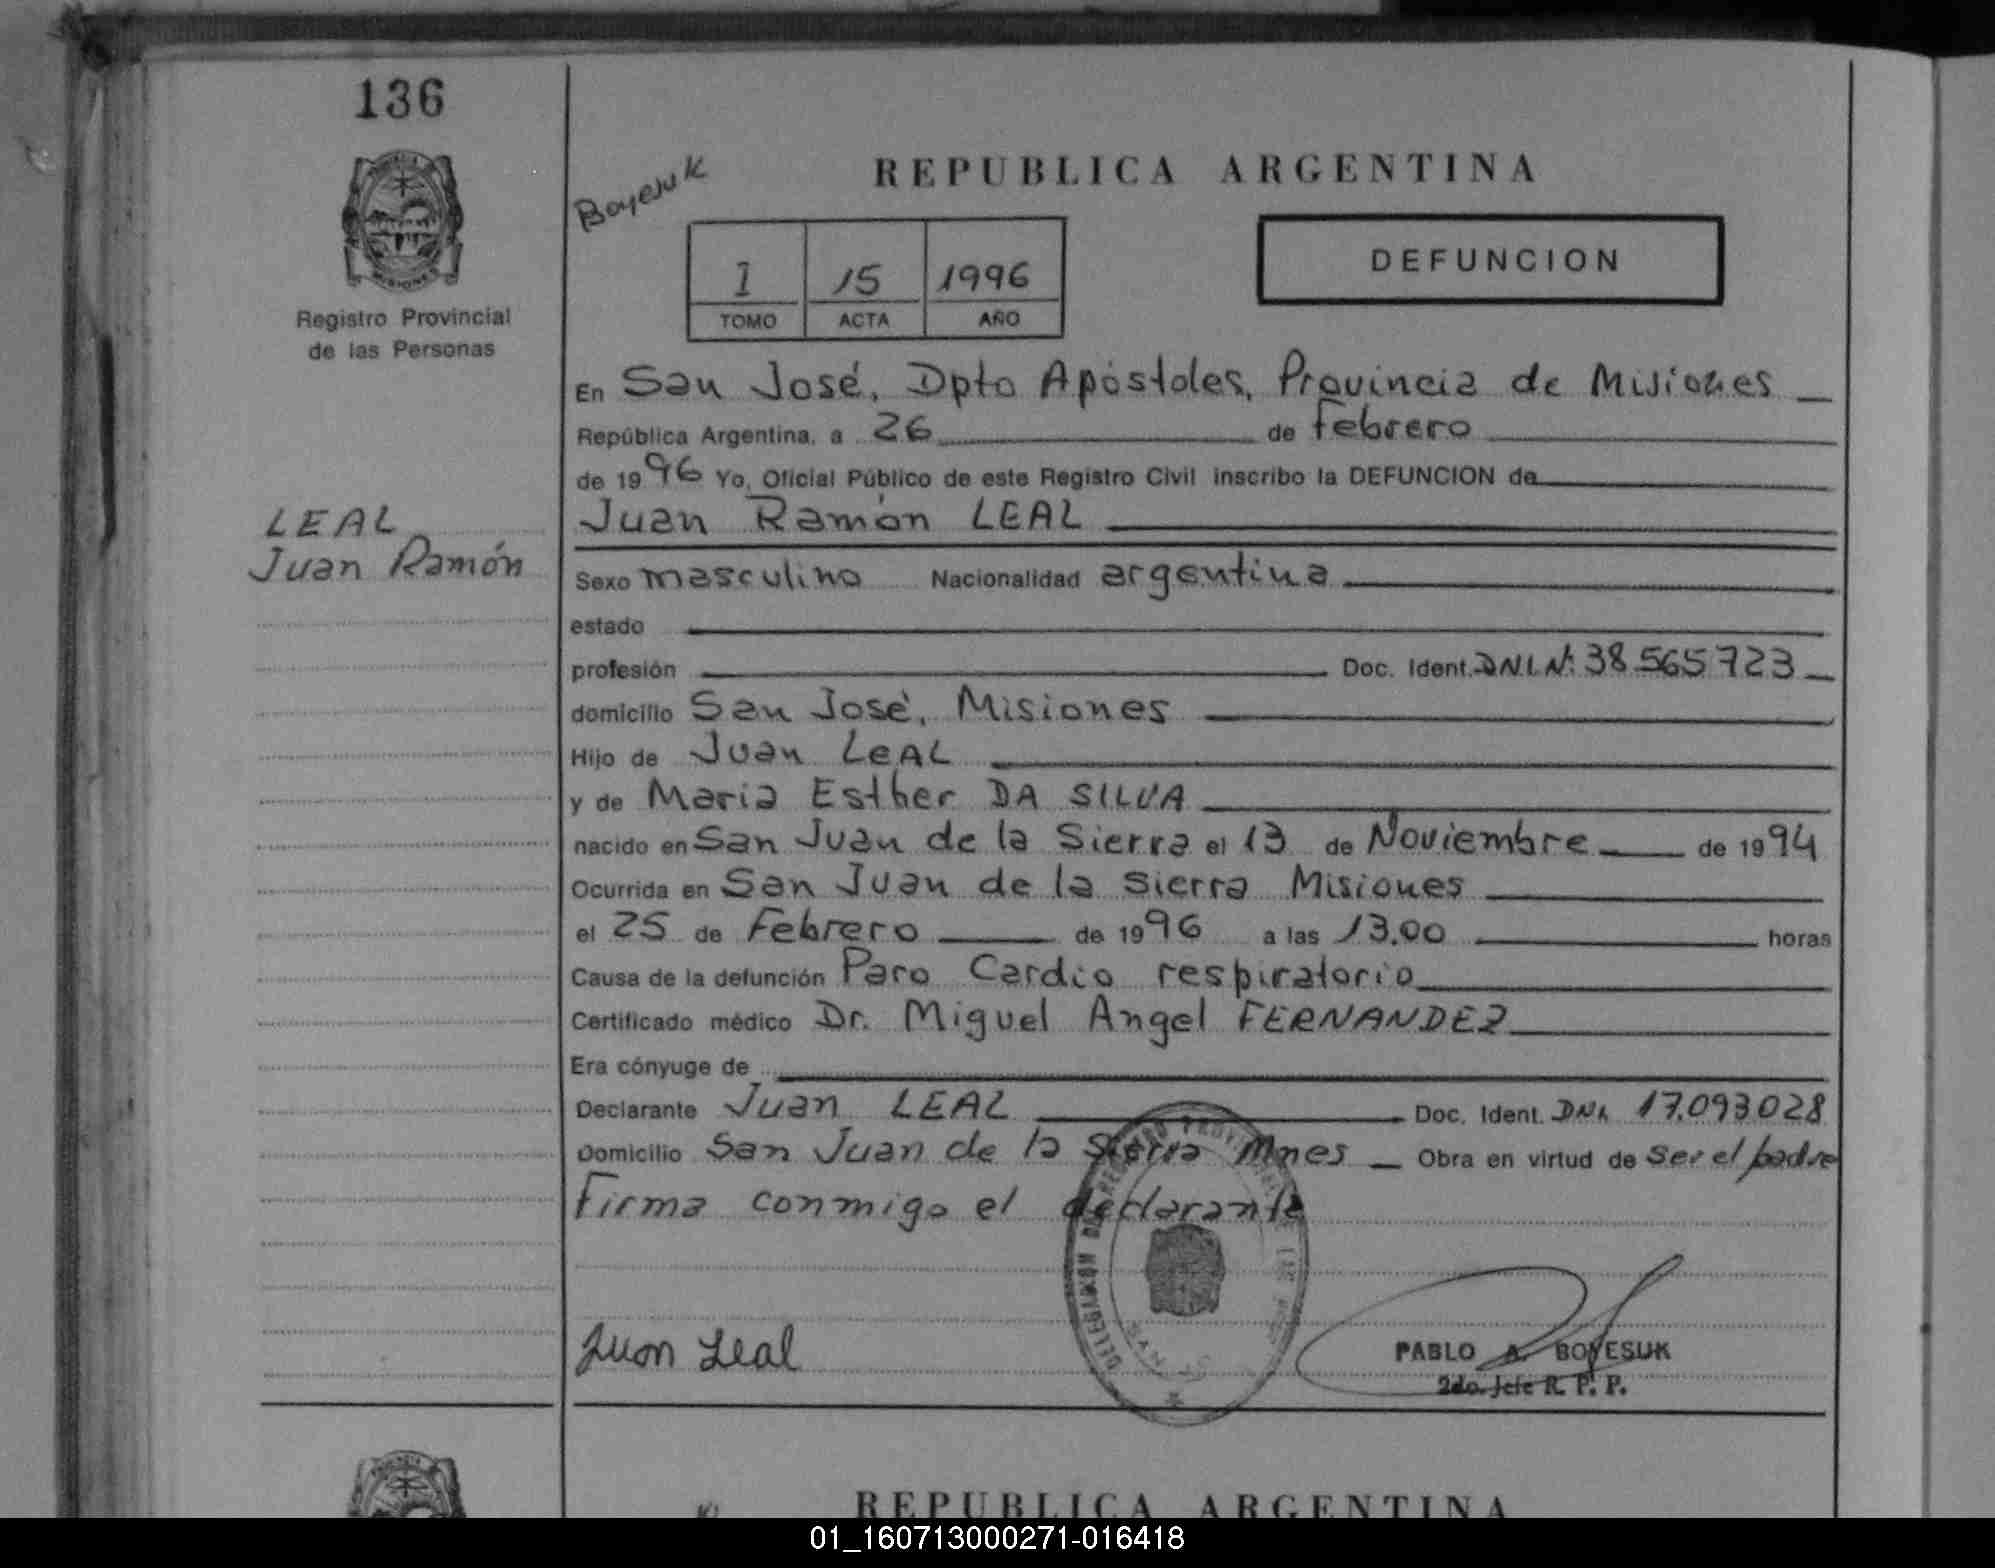 136
Boyesuk
REPUBLICA ARGENTINA
I 15 1996
TOMO ACTA AÑO
DEFUNCION
MISIONES
Registro Provincial
de las Personas
LEAL
Juan Ramón
En San José, Dpto Apóstoles, Provincia de Misiones
República Argentina, a 26 de febrero
de 1996 Yo, Oficial Público de este Registro Civil inscribo la DEFUNCION de
Juan Ramón LEAL
Sexo masculino Nacionalidad argentina
estado
profesión Doc. Ident. DNI. Nº: 38.565.723
domicilio San José, Misiones
Hijo de Juan LEAL
y de Maria Esther DA SILVA
nacido en San Juan de la Sierra el 13 de Noviembre de 1994
Ocurrida en San Juan de la Sierra Misiones
el 25 de Febrero de 1996 a las 13.00 horas
Causa de la defunción Paro Cardio respiratorio
Certificado médico Dr. Miguel Angel FERNANDEZ
Era cónyuge de
Declarante Juan LEAL Doc. Ident. DNI. 17.093.028
Domicilio San Juan de la Sierra Mnes Obra en virtud de ser el padre
Firma conmigo el declarante
Juan Leal
PABLO A. BOYESUK
2do. Jefe R. P. P.
REPUBLICA ARGENTINA
01_160713000271-016418